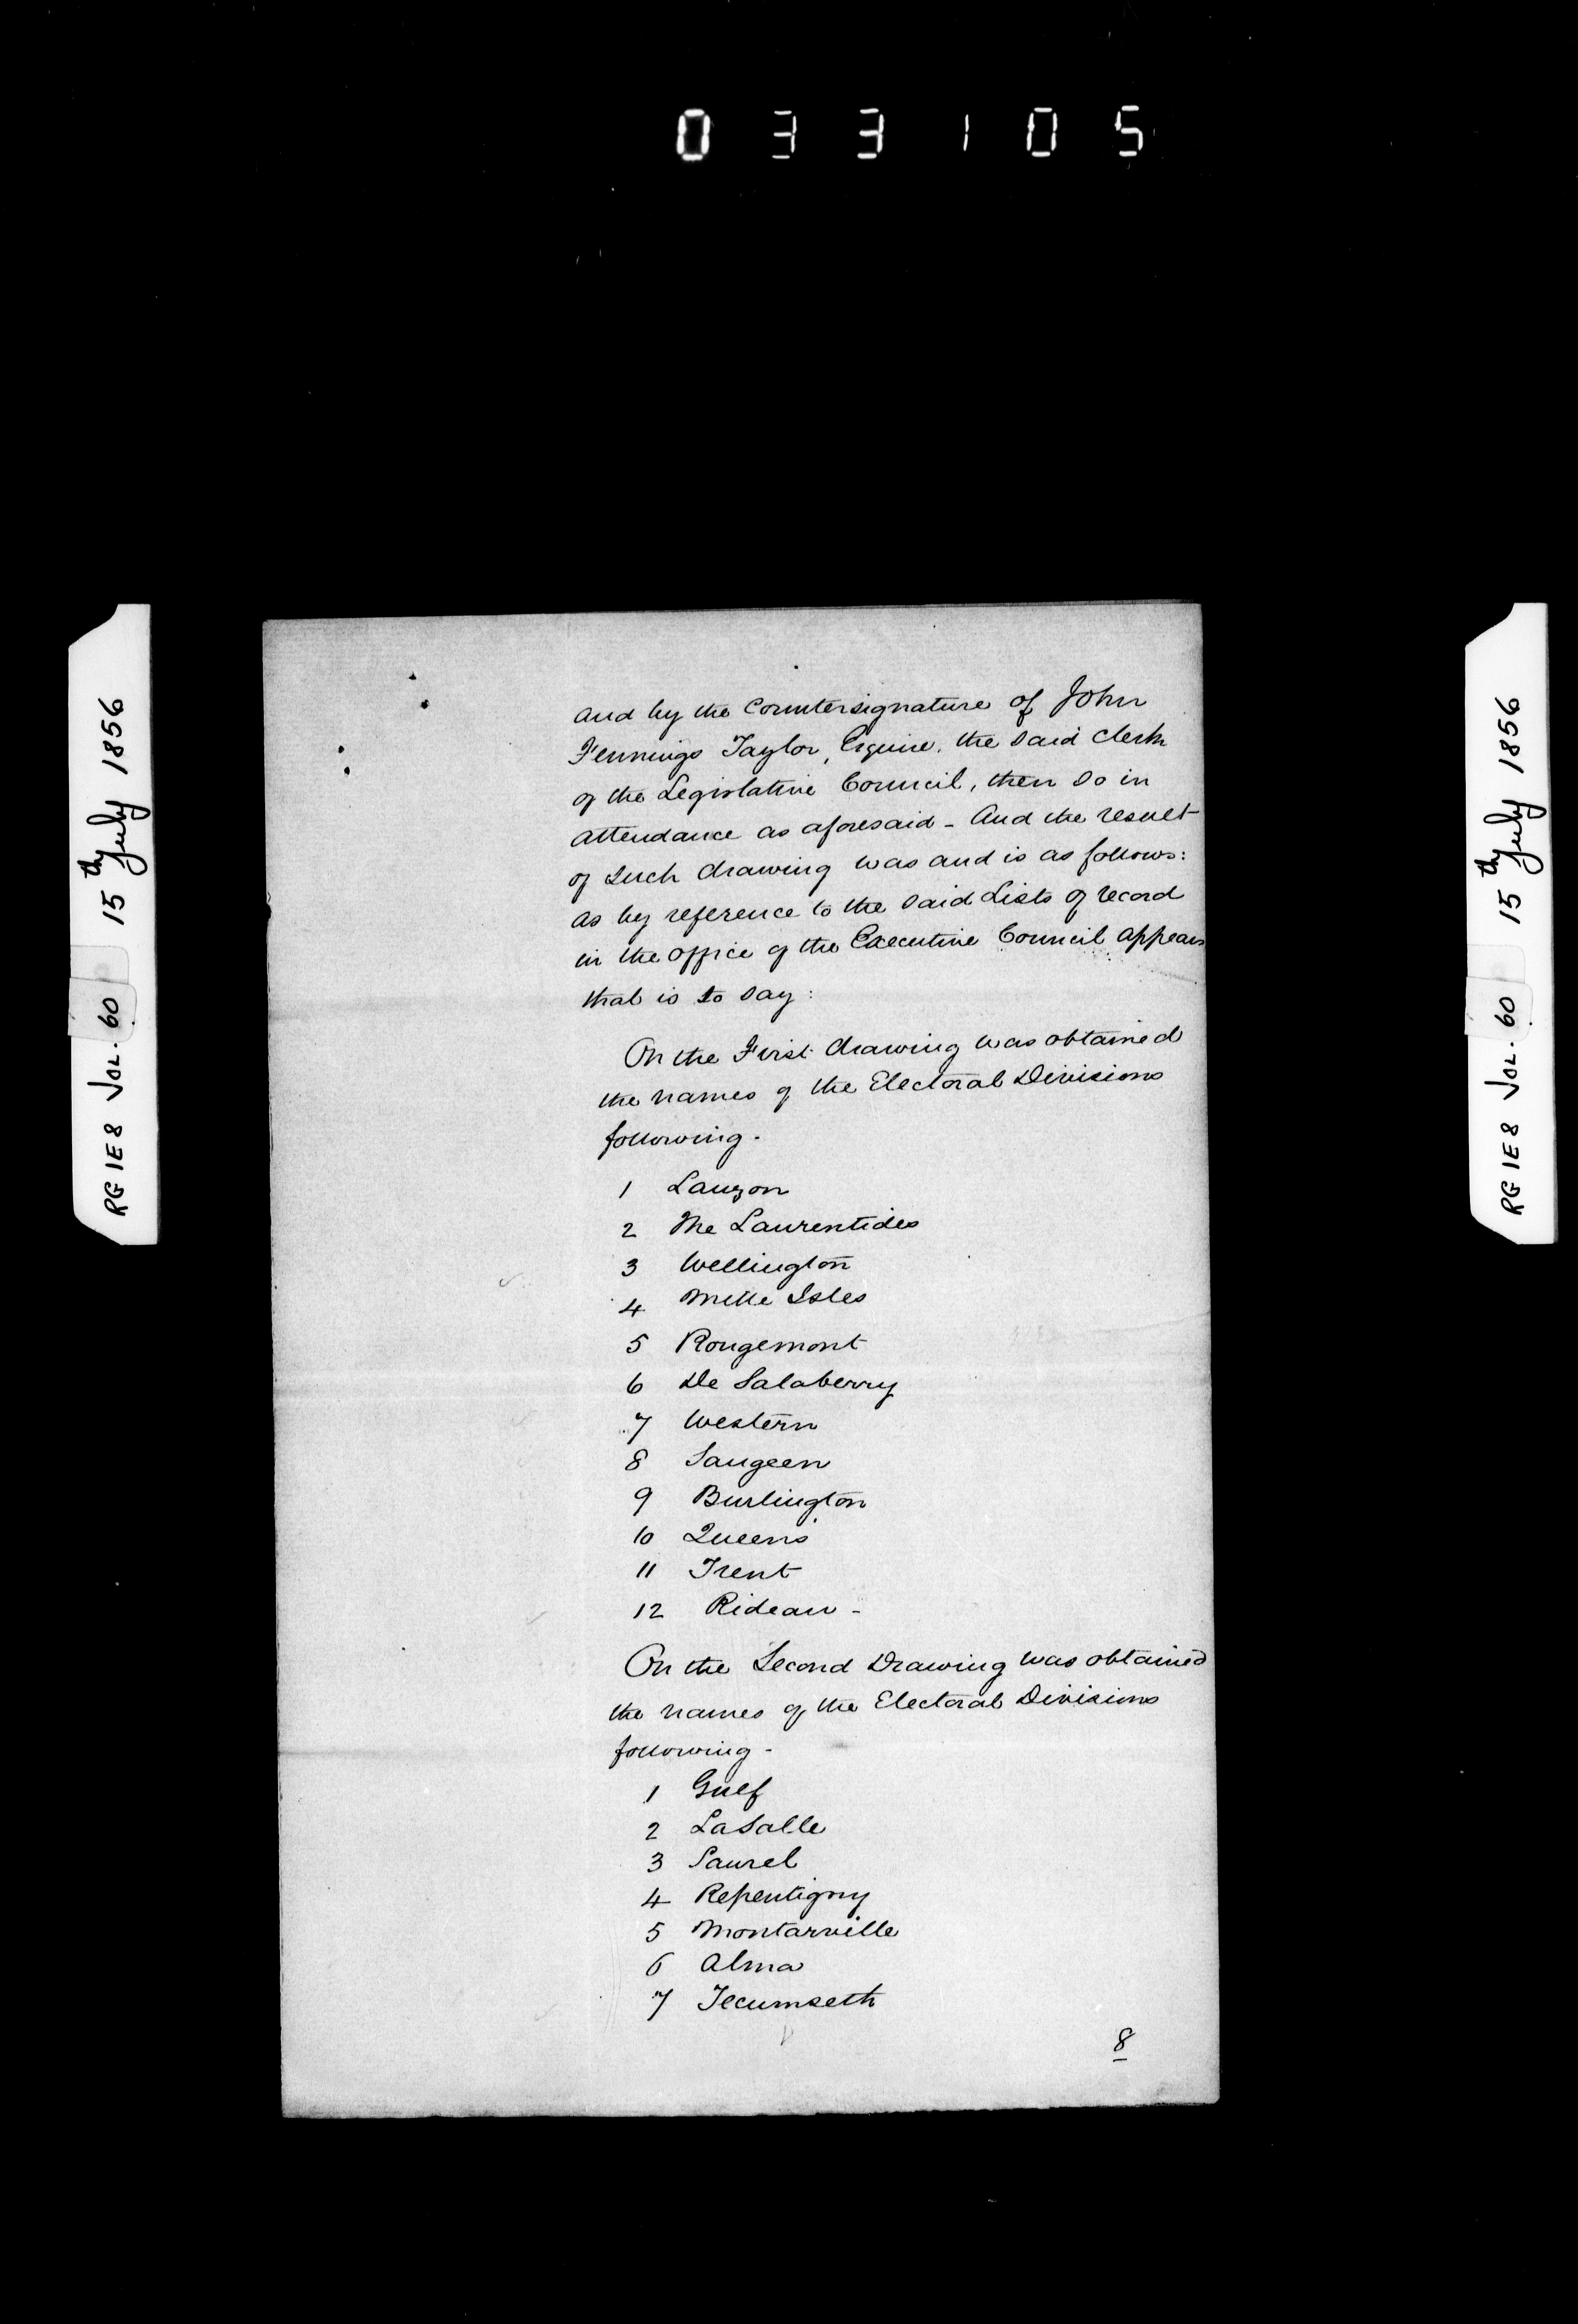 033105
RG 1E8 VOL. 60 15th July 1856
and by the Countersignature of John
Fennings Taylor, Esquire, the said Clerk
of the Legislative Council, then so in
attendance as aforesaid - And the result
of such drawing was and is as follows:
as by reference to the said Lists of record
in the office of the Executive Council appears
that is to say:
On the First drawing was obtained
the names of the Electoral Divisions
following -
1 Lauzon
2 The Laurentides
3 Wellington
4 Mille Isles
5 Rougemont
6 De Salaberry
7 Western
8 Saugeen
9 Burlington
10 Queen's
11 Trent
12 Rideau -
On the Second Drawing was obtained
the names of the Electoral Divisions
following -
1 Gulf
2 LaSalle
3 Saurel
4 Repentigny
5 Montarville
6 Alma
7 Tecumseth
8
RG 1E8 VOL. 60 15th July 1856